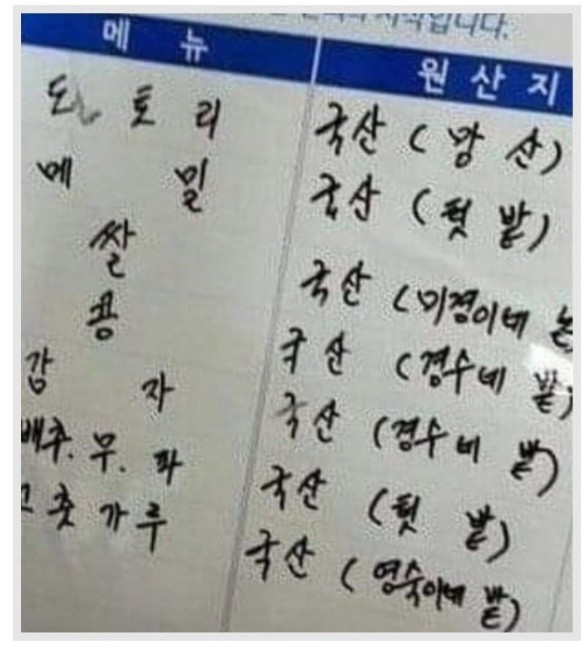 지석입니다.
메뉴 원산지
도토리 국산 (앞산)
메밀 국산 (텃밭)
쌀 국산 (미경이네 논
콩 국산 (경수네 밭)
감자 국산 (경수네 밭)
배추.무.파 국산 (텃밭)
고춧가루 국산 (영숙이네 밭)